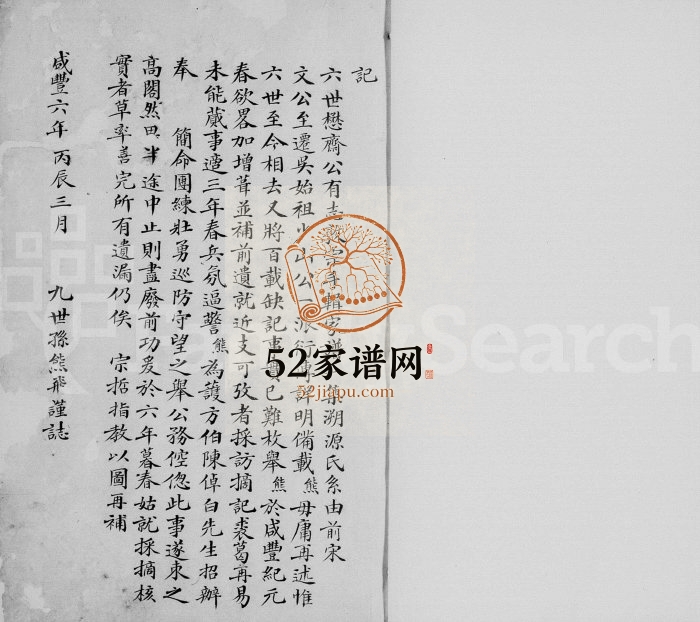 記
六世懋齋公有志 家 溯源氏系由前宋
文公至遷吳始祖 山公 詳明備載熊毋庸再述惟
六世至今相去又將百載缺記事實已難枚舉熊於咸豐紀元
春欲畧加增葺並補前遺就近支可攷者採訪摘記裘葛再易
未能蕆事適三年春兵氛逼警熊為護方伯陳倬白先生招辦
奉 簡命團練壯勇巡防守望之舉公務倥偬此事遂束之
高閣然思半途中止則盡廢前功爰於六年暮春姑就採摘核
實者草率善完所有遺漏仍俟 宗哲指教以圖再補
咸豐六年丙辰三月 九世孫熊飛謹誌
52家谱网
52jiapu.com
Search